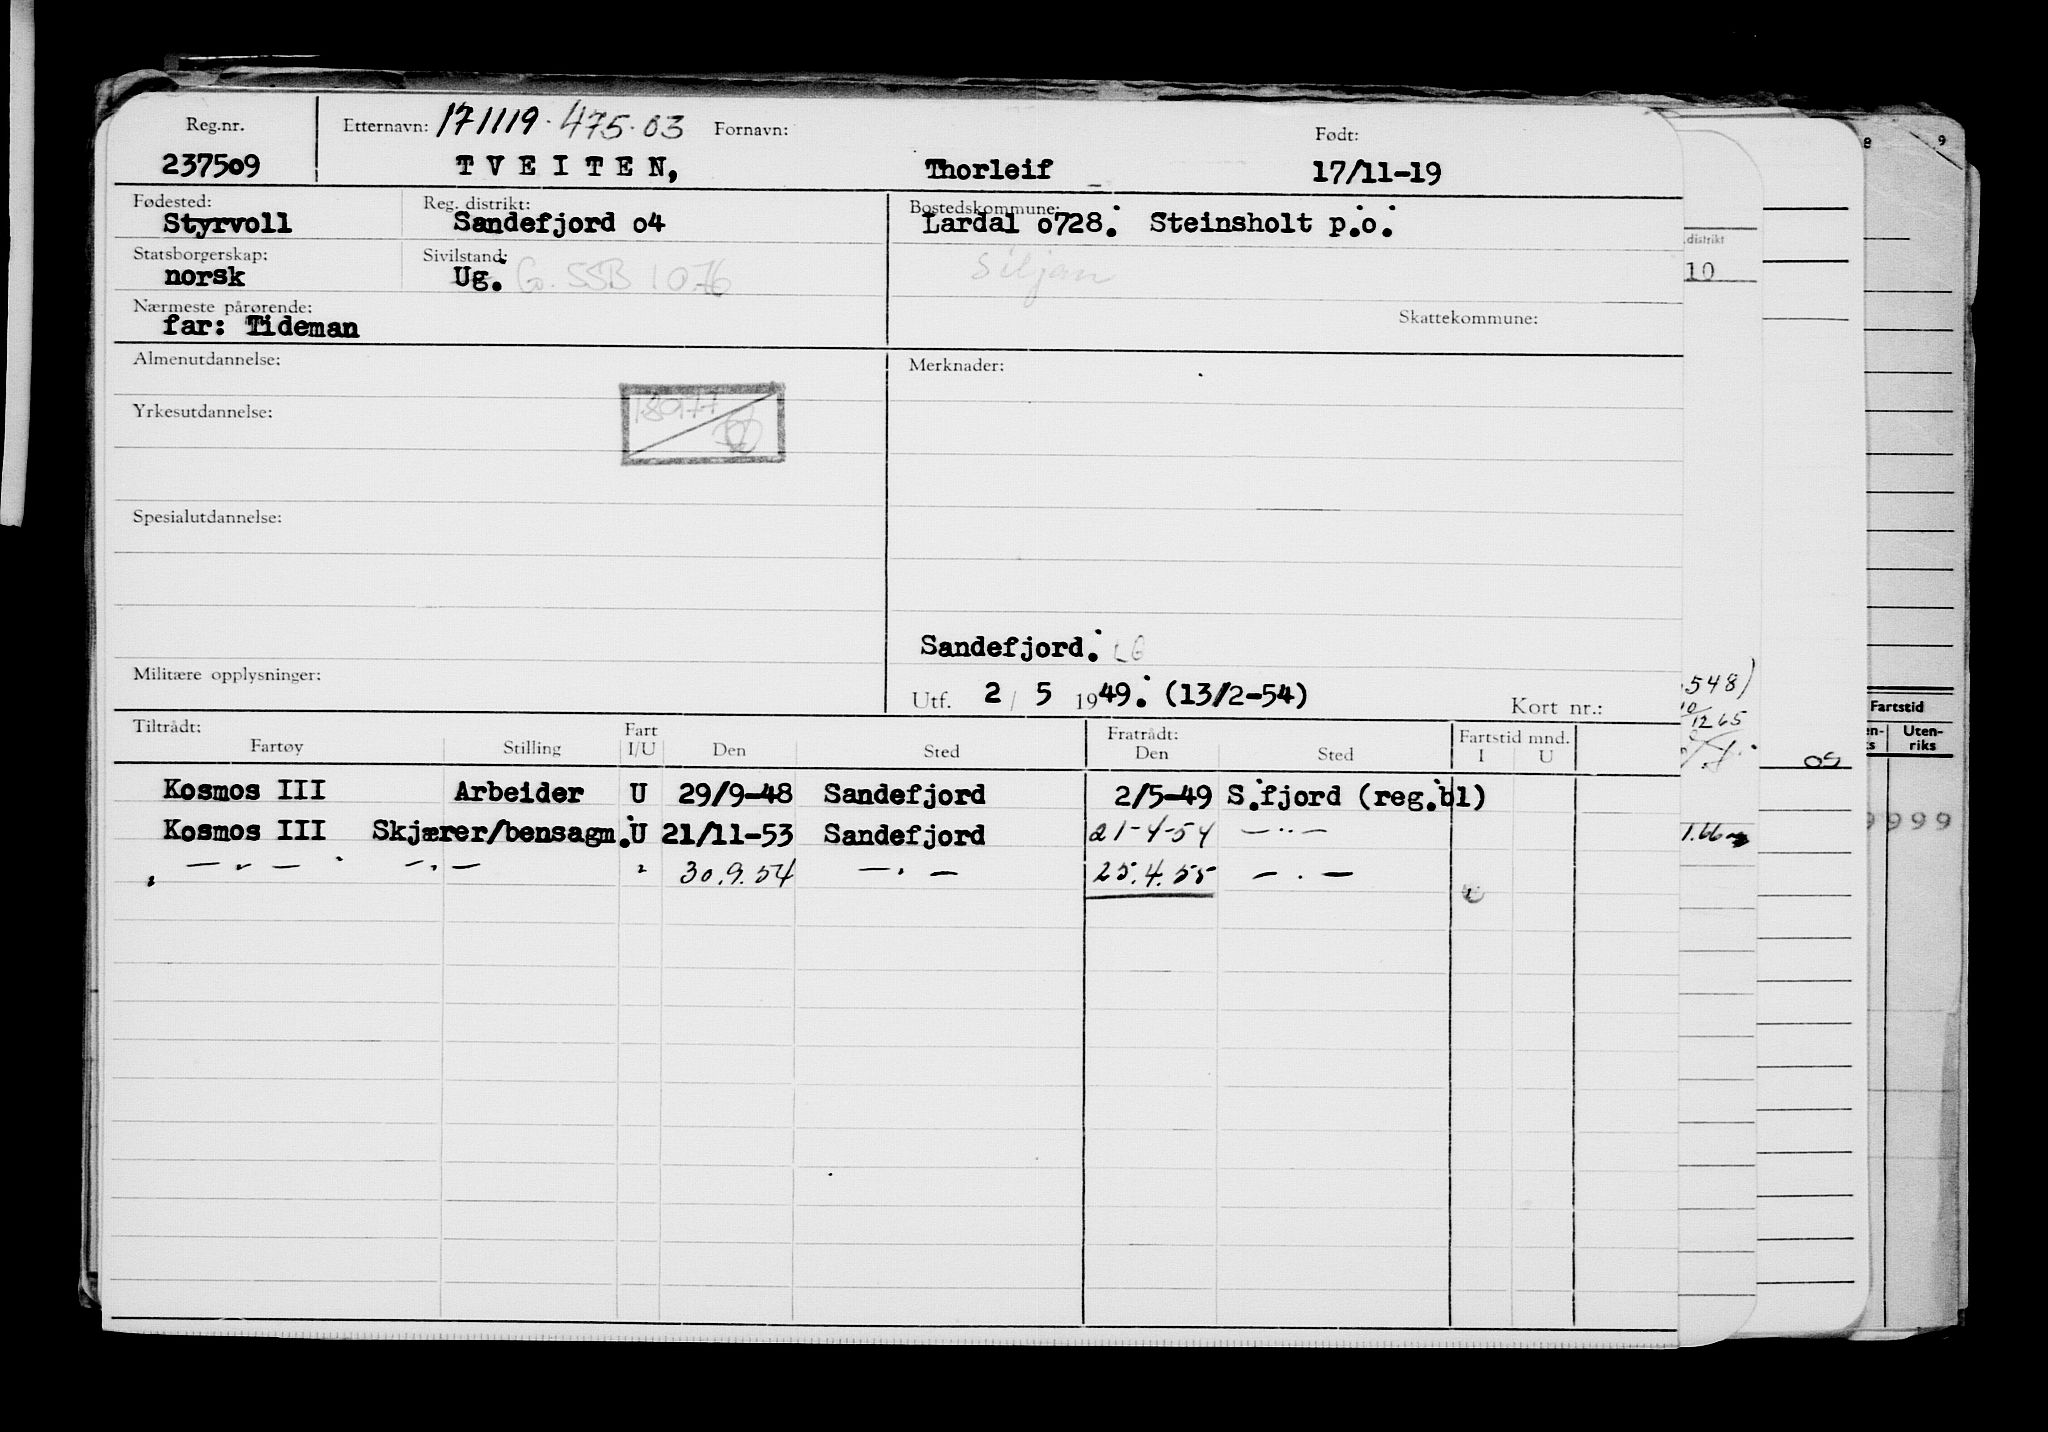 Reg.nr. Etternavn: 171119.475.03 Fornavn: Født:
237509 TVEITEN, Thorleif 17/11-19
Fødested: Reg. distrikt: Bostedskommune:
Styrvoll Sandefjord o4 Lardal o728. Steinsholt p.o.
Statsborgerskap: Sivilstand: Siljan
norsk Ug.
Nærmeste pårørende: Skattekommune:
far: Tideman
Almenutdannelse: Merknader:
Yrkesutdannelse:
Spesialutdannelse:
Sandefjord.
Militære opplysninger:
Utf. 2/5 1949. (13/2-54) Kort nr.:
Tiltrådt: Fart Fratrådt: Fartstid mnd.
Fartøy Stilling I/U Den Sted Den Sted I U
Kosmos III Arbeider U 29/9-48 Sandefjord 2/5-49 S.fjord (reg.bl)
Kosmos III Skjærer/bensagm. U 21/11-53 Sandefjord 21-4-54 -"-
-"- -"- " 30.9.54 -"- 25.4.55 -"-
distrikt
10
548)
10/12 65
1.66
09
e 9
Fartstid
Uten-
riks
9999